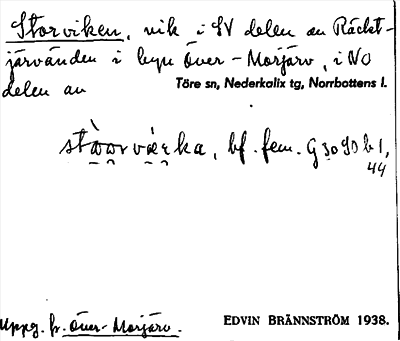 Storviken, vik i SV delen av Räckt-
järvänden i byn Över-Morjärv, i NO
delen av Töre sn, Nederkalix tg, Norrbottens l.
bf. fem. G 3090 b 1,
44
Uppg. fr. Över-Morjärv.
EDVIN BRÄNNSTRÖM 1938.